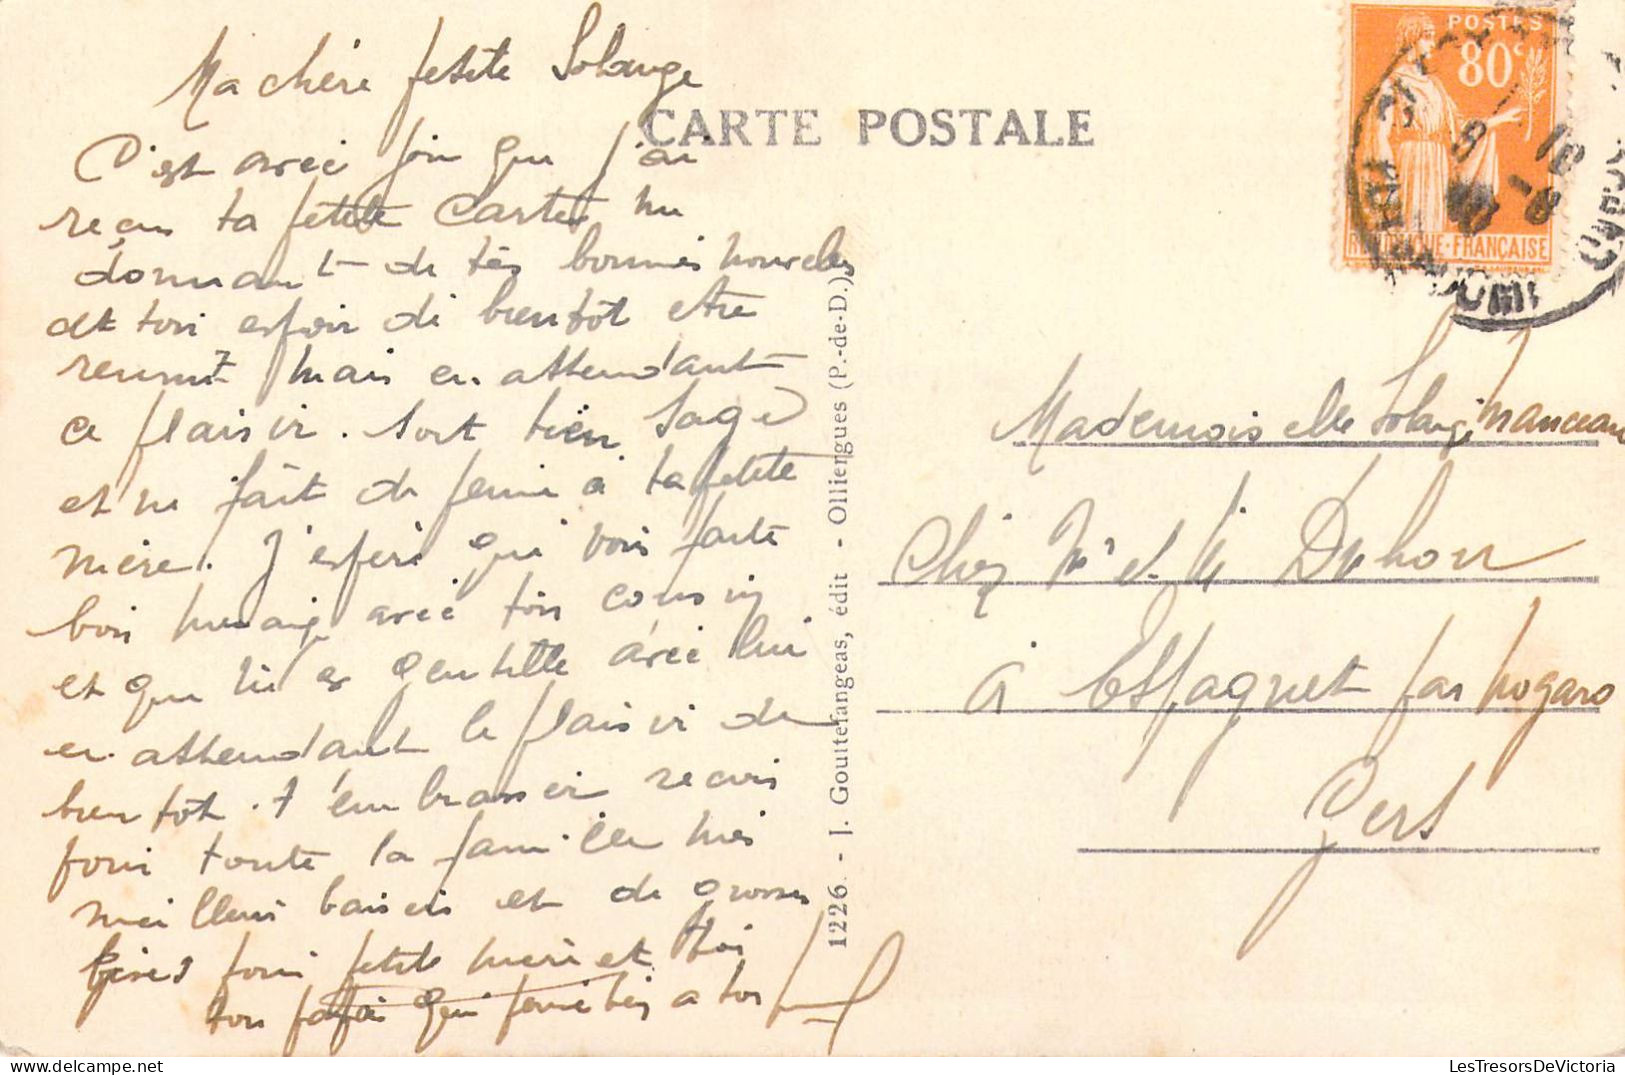 CARTE POSTALE
POSTES
80c
REPUBLIQUE-FRANÇAISE
Ma chère petite Solange
C'est avec joie que j'ai
reçu ta petite carte me
donnant de tes bonnes nouvelles
et ton espoir de bientôt etre
reunit mais en attendant
ce plaisir. soit bien sage
et ne fait de peine à ta petite
mère. J'espere que vous faite
bon menage avec ton cousin
et que tu es gentille avec lui
en attendant le plaisir de
bientôt . t'embrasser recois
pour toute la famille mes
meilleurs baisers et de grosses
bises pour petite mère et toi
ton papa qui pense bien a toi
1226. - J. Gouttefangeas, édit - Olliergues (P.-de-D.)
Mademoiselle Solange Manceau
Chez Mr et Me Duhou
à Espagnet par Nogaro
Gers
LesTresorsDeVictoria